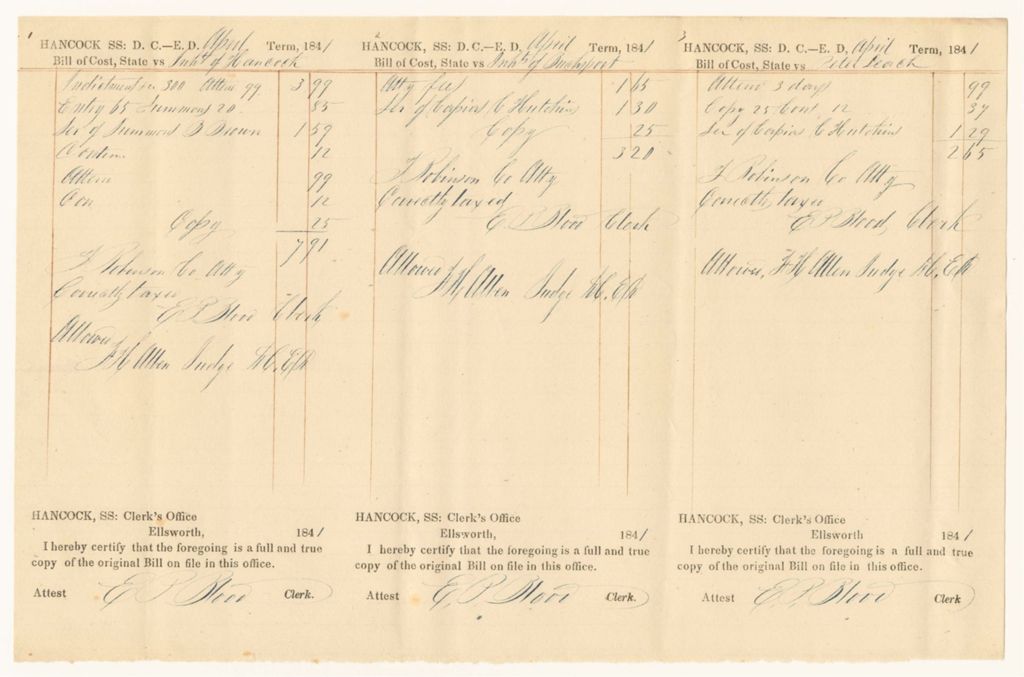 1
HANCOCK SS: D. C.—E. D. April Term, 1841
Bill of Cost, State vs Inhts of Hancock
Indictment 300 Atten 99 3 99
Entry 65 Summons 20 85
Ser of Summons B Brown 1 59
Contin. 12
Atten 99
Con 12
Copy 25
7 91
F Robinson Co Atty
Correctly taxed
E P Blood Clerk
Allowed
F H Allen Judge D.C. E D
HANCOCK, SS: Clerk's Office
Ellsworth, 1841
I hereby certify that the foregoing is a full and true
copy of the original Bill on file in this office.
Attest E P Blood Clerk.
2
HANCOCK, SS: D. C.—E. D. April Term, 1841
Bill of Cost, State vs Inhts of
Atty fees 1 65
Ser of Capias C Hutchins 1 30
Copy 25
3 20
F Robinson Co Atty
Correctly taxed
E P Blood Clerk
Allowed
F H Allen Judge D.C. E D
HANCOCK, SS: Clerk's Office
Ellsworth, 1841
I hereby certify that the foregoing is a full and true
copy of the original Bill on file in this office.
Attest E P Blood Clerk.
3
HANCOCK, SS: D. C.—E. D. April Term, 1841
Bill of Cost, State vs Peter Leach
Atten 3 days 99
Copy 25 Cont. 12 37
Ser of Capias C Hutchins 1 29
2 65
F Robinson Co Atty
Correctly taxed
E P Blood, Clerk
Allowed, F H Allen Judge D.C. E D
HANCOCK, SS: Clerk's Office
Ellsworth 1841
I hereby certify that the foregoing is a full and true
copy of the original Bill on file in this office.
Attest E P Blood Clerk